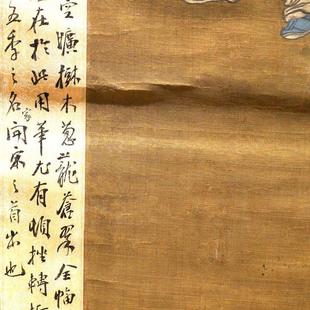 空曠樹木蔥蘢蒼翠全幅
在於此用筆尤有頓挫轉
五季之名家開宋之首出也